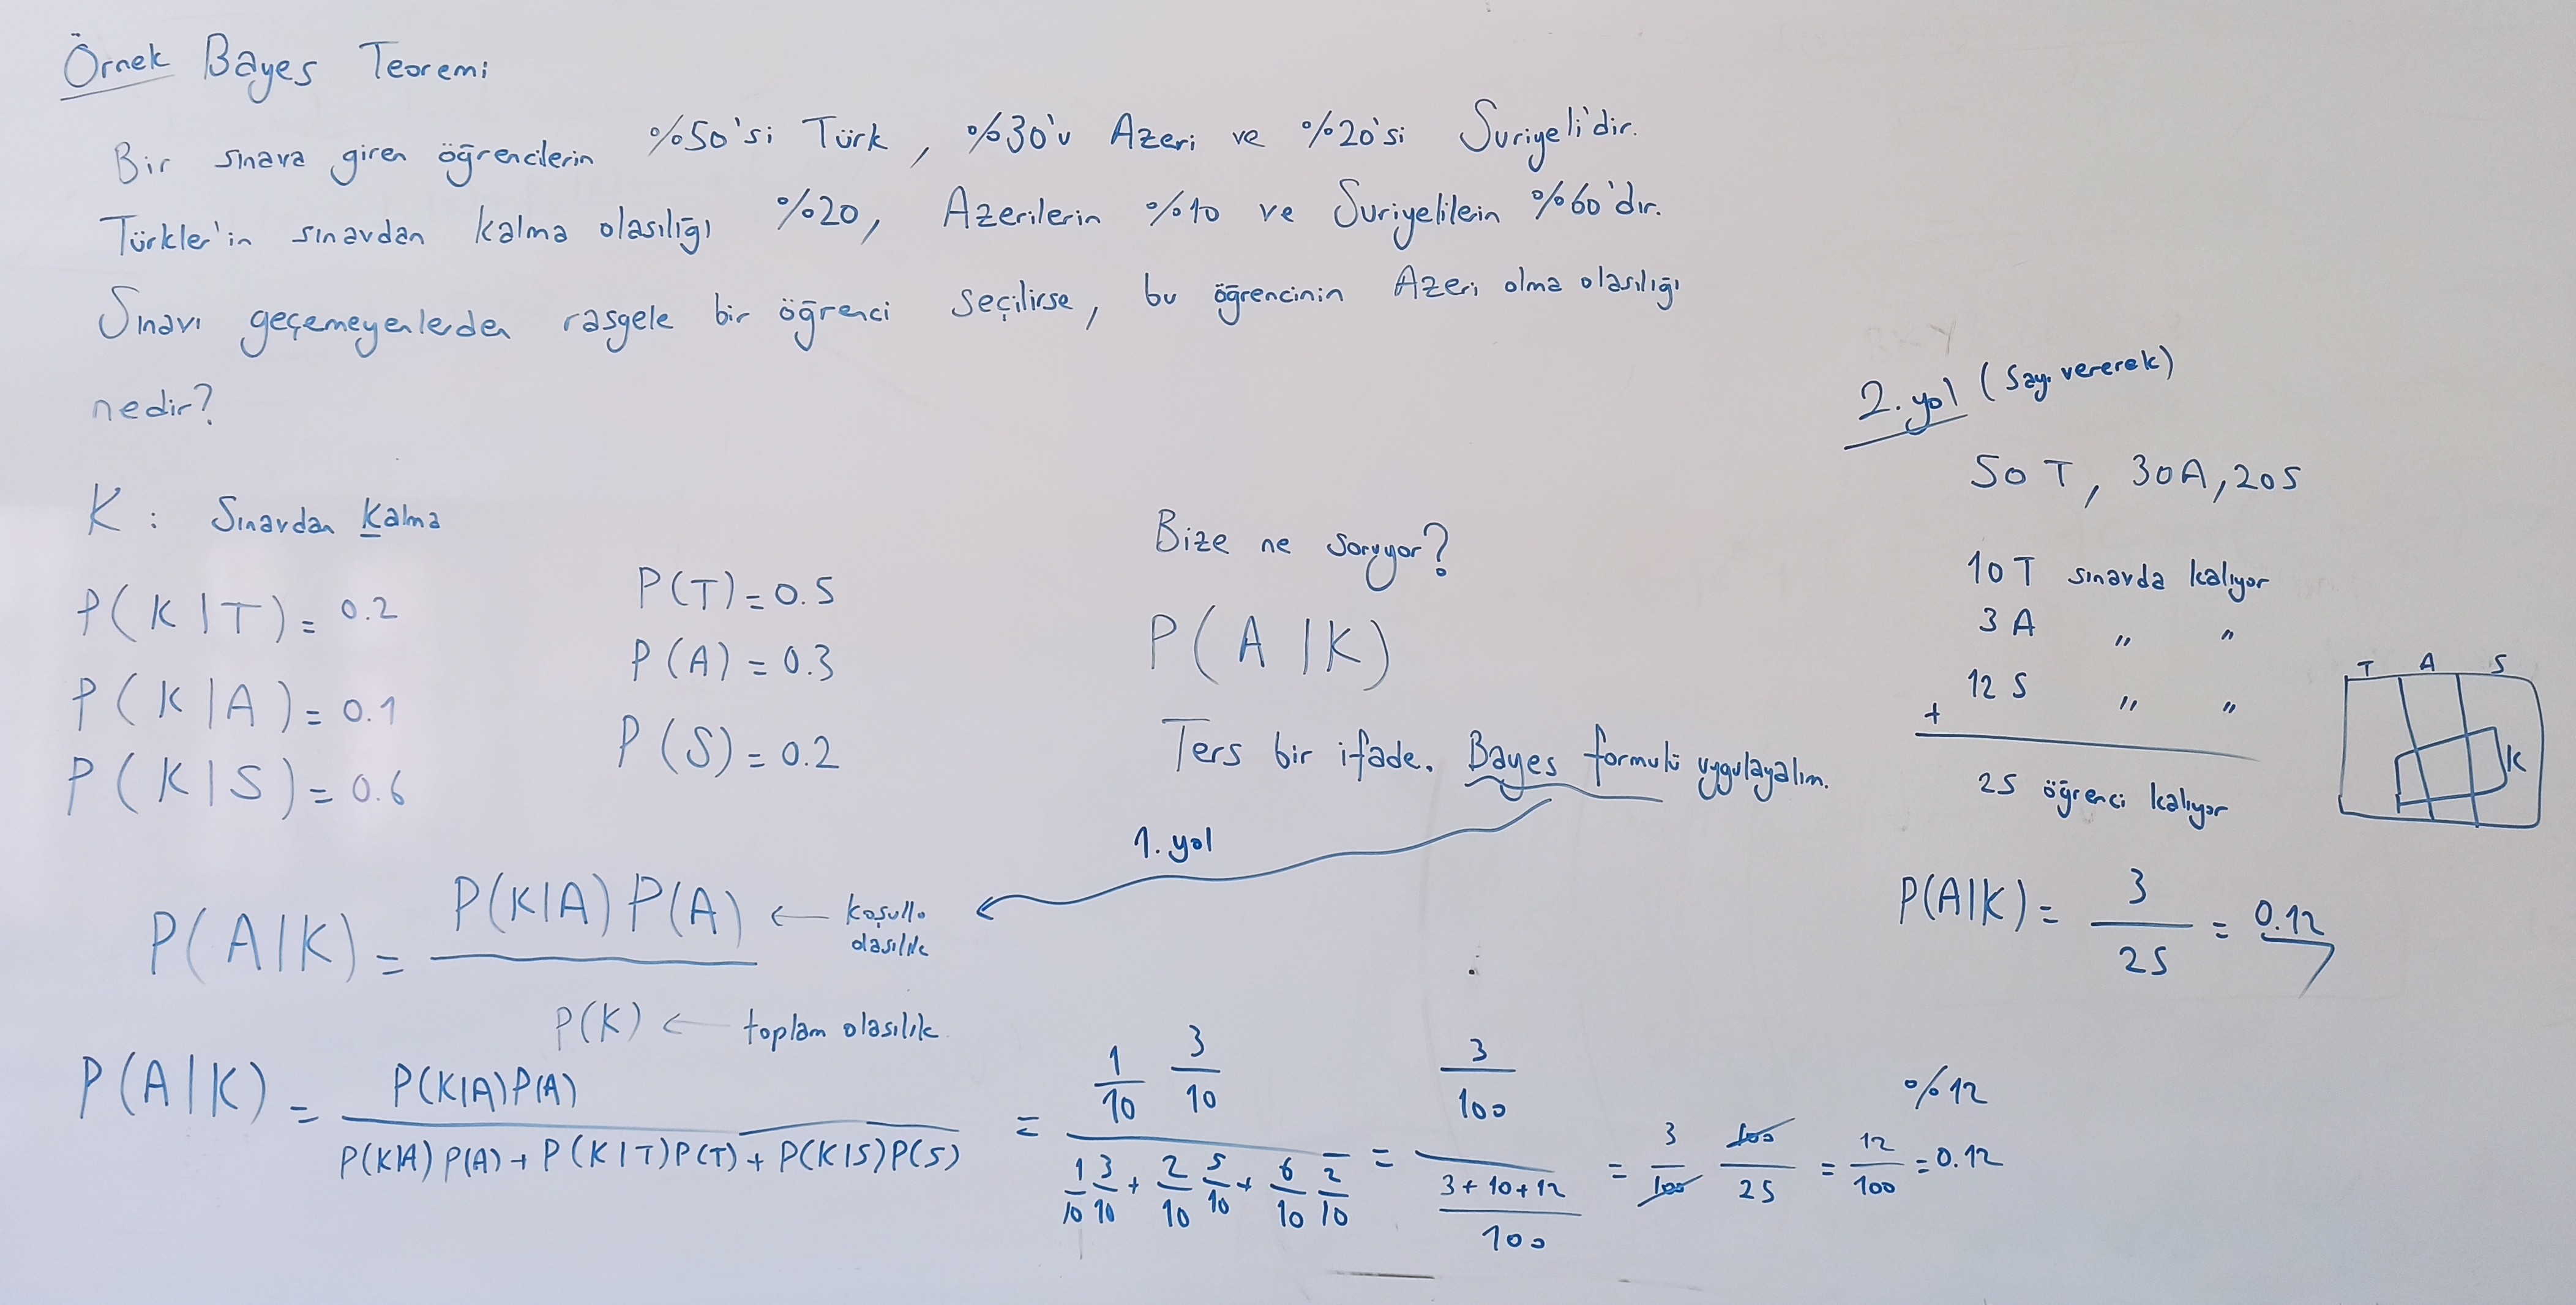 Örnek Bayes Teoremi
Bir sınava giren öğrencilerin %50'si Türk, %30'u Azeri ve %20'si Suriyeli'dir.
Türkler'in sınavdan kalma olasılığı %20, Azerilerin %10 ve Suriyelilerin %60'dır.
Sınavı geçemeyenlerden rasgele bir öğrenci seçilirse, bu öğrencinin Azeri olma olasılığı
nedir?
K : Sınavdan Kalma
P(K|T) = 0.2
P(K|A) = 0.1
P(K|S) = 0.6
P(T) = 0.5
P(A) = 0.3
P(S) = 0.2
Bize ne soruyor?
P(A|K)
Ters bir ifade. Bayes formülü uygulayalım.
1. yol
P(A|K) = P(K|A) P(A) / P(K)
← koşullu olasılık
← toplam olasılık
P(A|K) = P(K|A)P(A) / P(K|A) P(A) + P(K|T)P(T) + P(K|S)P(S) = 1/10 3/10 / 1/10 3/10 + 2/10 5/10 + 6/10 2/10 = 3/100 / 3+10+12/100 = 3/100 100/25 = 12/100 = 0.12
%12
2. yol (Sayı vererek)
50 T, 30A, 20S
10 T sınavda kalıyor
3 A " "
12 S " "
+
25 öğrenci kalıyor
T A S
K
P(A|K) = 3/25 = 0.12